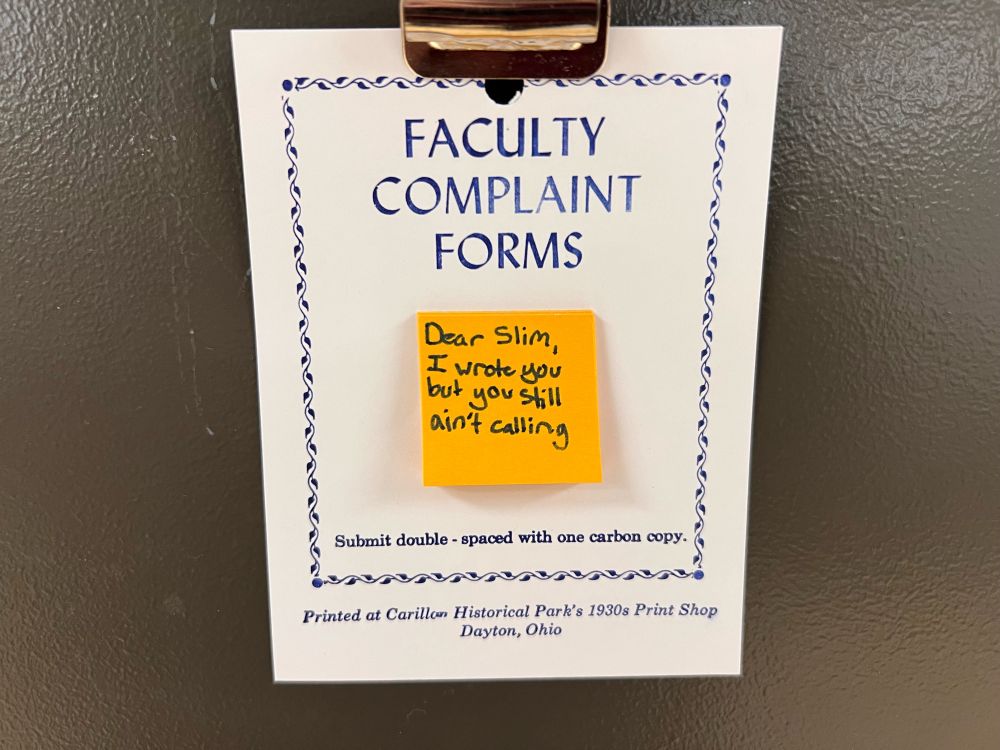 FACULTY
COMPLAINT
FORMS
Dear Slim,
I wrote you
but you still
ain't calling
Submit double - spaced with one carbon copy.
Printed at Carillon Historical Park's 1930s Print Shop
Dayton, Ohio